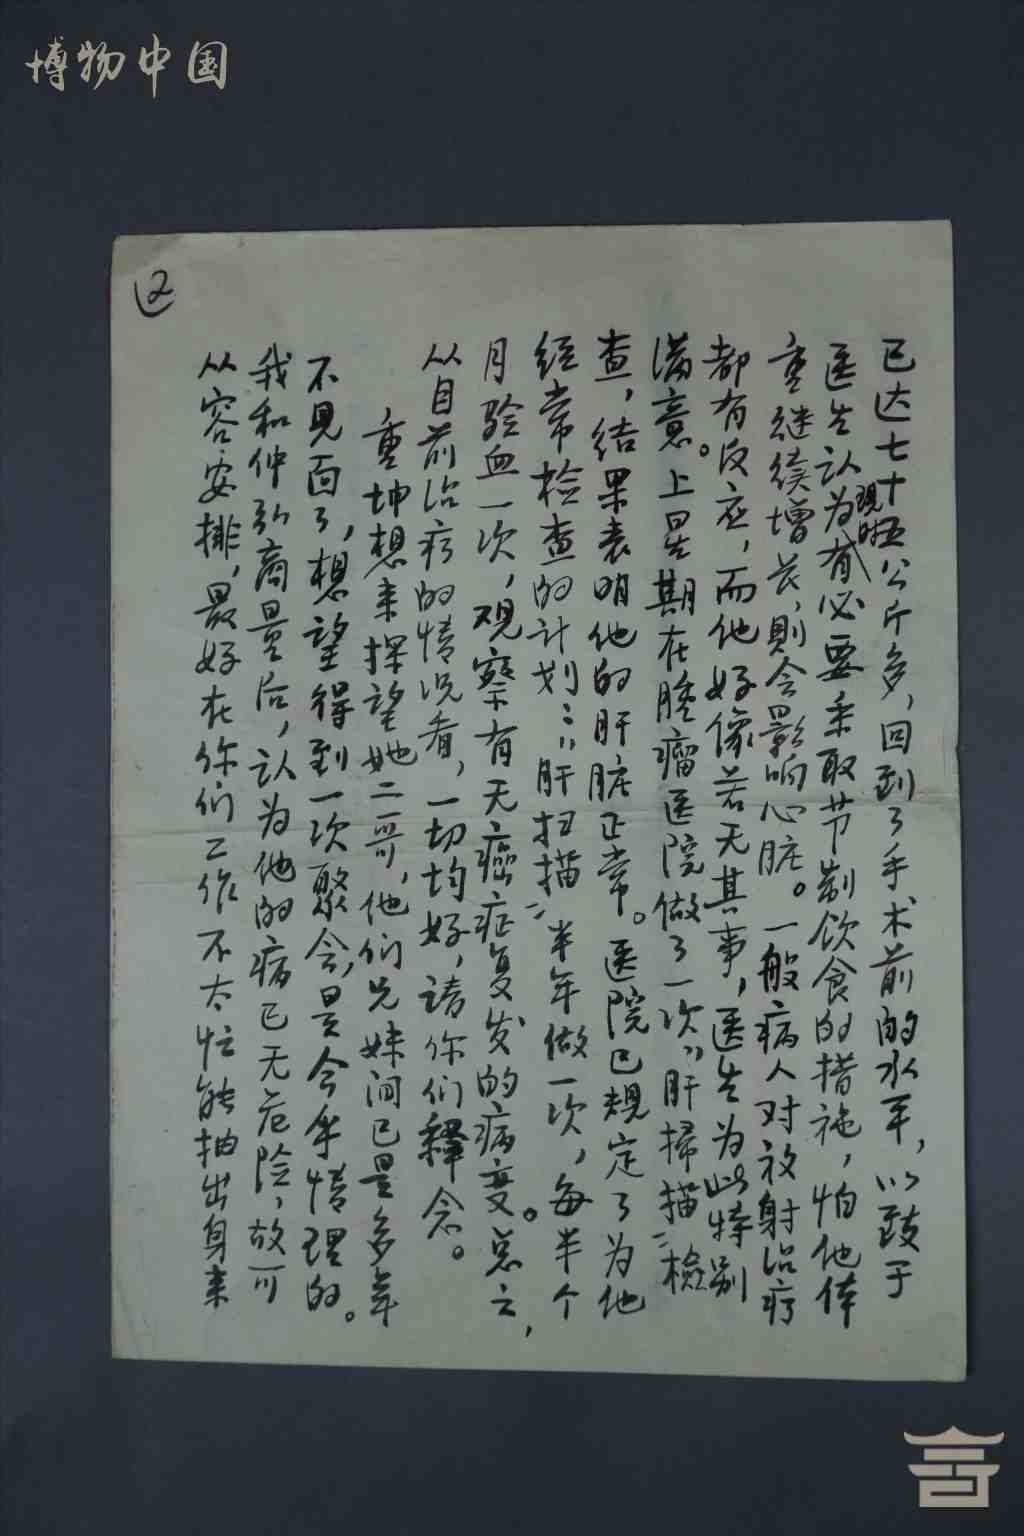 博物中国
②
已达七十五公斤多,回到了手术前的水平,以致于
医生认为现时有必要采取节制饮食的措施,怕他体
重继续增长,则会影响心脏。一般病人对放射治疗
都有反应,而他好像若无其事,医生为此特别
满意。上星期在肿瘤医院做了一次“肝掃描”檢
查,结果表明他的肝脏正常。医院已规定了为他
经常检查的计划:“肝扫描”半年做一次,每半个
月验血一次,观察有无癌症复发的病变。总之,
从目前治疗的情况看,一切均好,请你们释念。
重坤想来探望她二哥,他们兄妹间已是多年
不见面了,想望得到一次聚会,是合乎情理的。
我和仲弘商量后,认为他的病已无危险,故可
从容安排,最好在你们工作不太忙能抽出身来